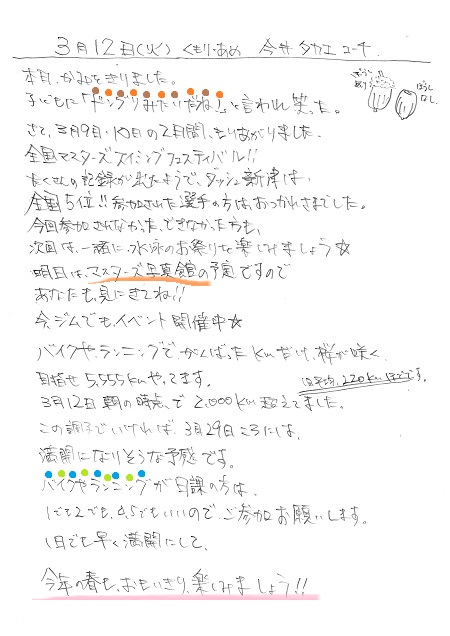 3月12日(火) くもり・あめ 今井タカエ コーチ.
本日、かみをきりました。
子どもに「ドングリみたいだね!」と言われ笑った。
ぼうし
あり
ぼうし
なし.
さて、3月9日・10日の2日間、もりあがりました.
全国マスターズスイミングフェスティバル!!
たくさんの記録が出たようで、ダッシュ新津は、
全国5位!! 参加された選手の方は、おつかれさまでした。
今回参加されなかった、できなかった方も、
次回は、一緒に、水泳のお祭りを楽しみましょう☆
明日は、マスターズ写真館の予定ですので
あなたも、見にきてね!!
今、ジムでも、イベント開催中☆
バイクや、ランニングで がんばった kmだけ、桜が咲く、
目指せ 5,555kmやってます。
1日平均、220kmほどです。
3月12日 朝の時点、で 2,000km超えてました。
この調子でいければ、3月29日ころには、
満開になりそうな予感です。
バイクやランニングが日課の方は、
1でも2でも、0.5でもいいので、ご参加お願いします。
1日でも早く満開にして、
今年の春も、おもいきり、楽しみましょう!!